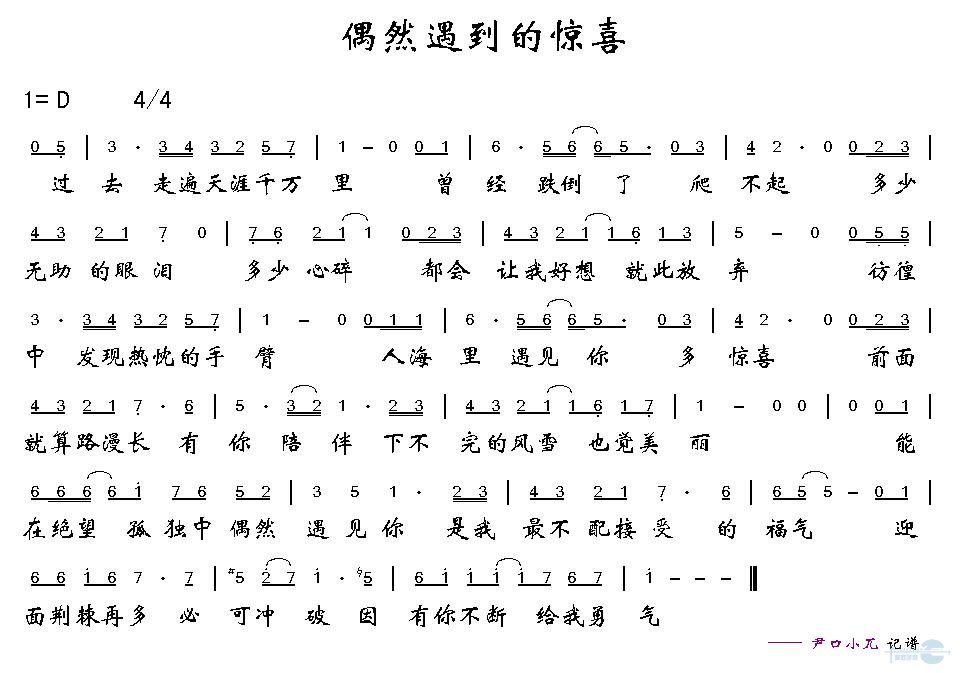 偶然遇到的惊喜
1= D 4/4
0 5 | 3 · 3 4 3 2 5 7 | 1 – 0 0 1 | 6 · 5 6 6 5 · 0 3 | 4 2 · 0 0 2 3 |
过 去 走遍天涯千万 里 曾 经 跌倒 了 爬 不起 多少
4 3 2 1 7 0 | 7 6 2 1 1 0 2 3 | 4 3 2 1 1 6 1 3 | 5 – 0 0 5 5 |
无助 的眼 泪 多少 心碎 都会 让我好想 就此放 弃 彷徨
3 · 3 4 3 2 5 7 | 1 – 0 0 1 1 | 6 · 5 6 6 5 · 0 3 | 4 2 · 0 0 2 3 |
中 发现热忱的手 臂 人海 里 遇见 你 多 惊喜 前面
4 3 2 1 7 · 6 | 5 · 3 2 1 · 2 3 | 4 3 2 1 1 6 1 7 | 1 – 0 0 | 0 0 1 |
就算路漫长 有 你 陪 伴 下不 完的风雪 也觉美 丽 能
6 6 6 6 1 7 6 5 2 | 3 5 1 · 2 3 | 4 3 2 1 7 · 6 | 6 5 5 – 0 1 |
在绝望 孤 独中 偶然 遇 见 你 是我 最不 配接 受 的 福气 迎
6 6 1 6 7 · 7 | #5 2 7 1 · 5 | 6 1 1 1 1 7 6 7 | 1 – – – ‖
面荆棘再多 必 可冲 破 因 有你不断 给我勇 气
—— 尹口小兀 记谱